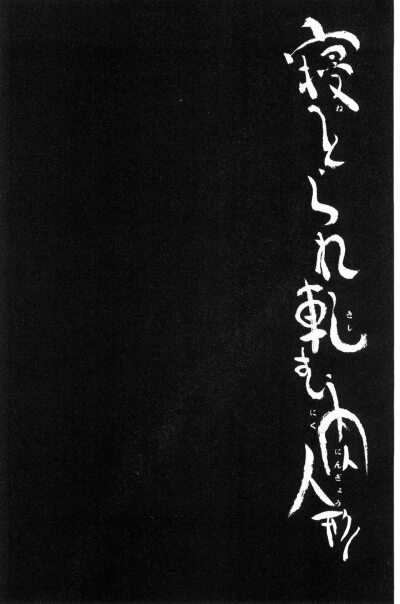 寝とられ軋む肉人形
ね
さし
にく
にんぎょう